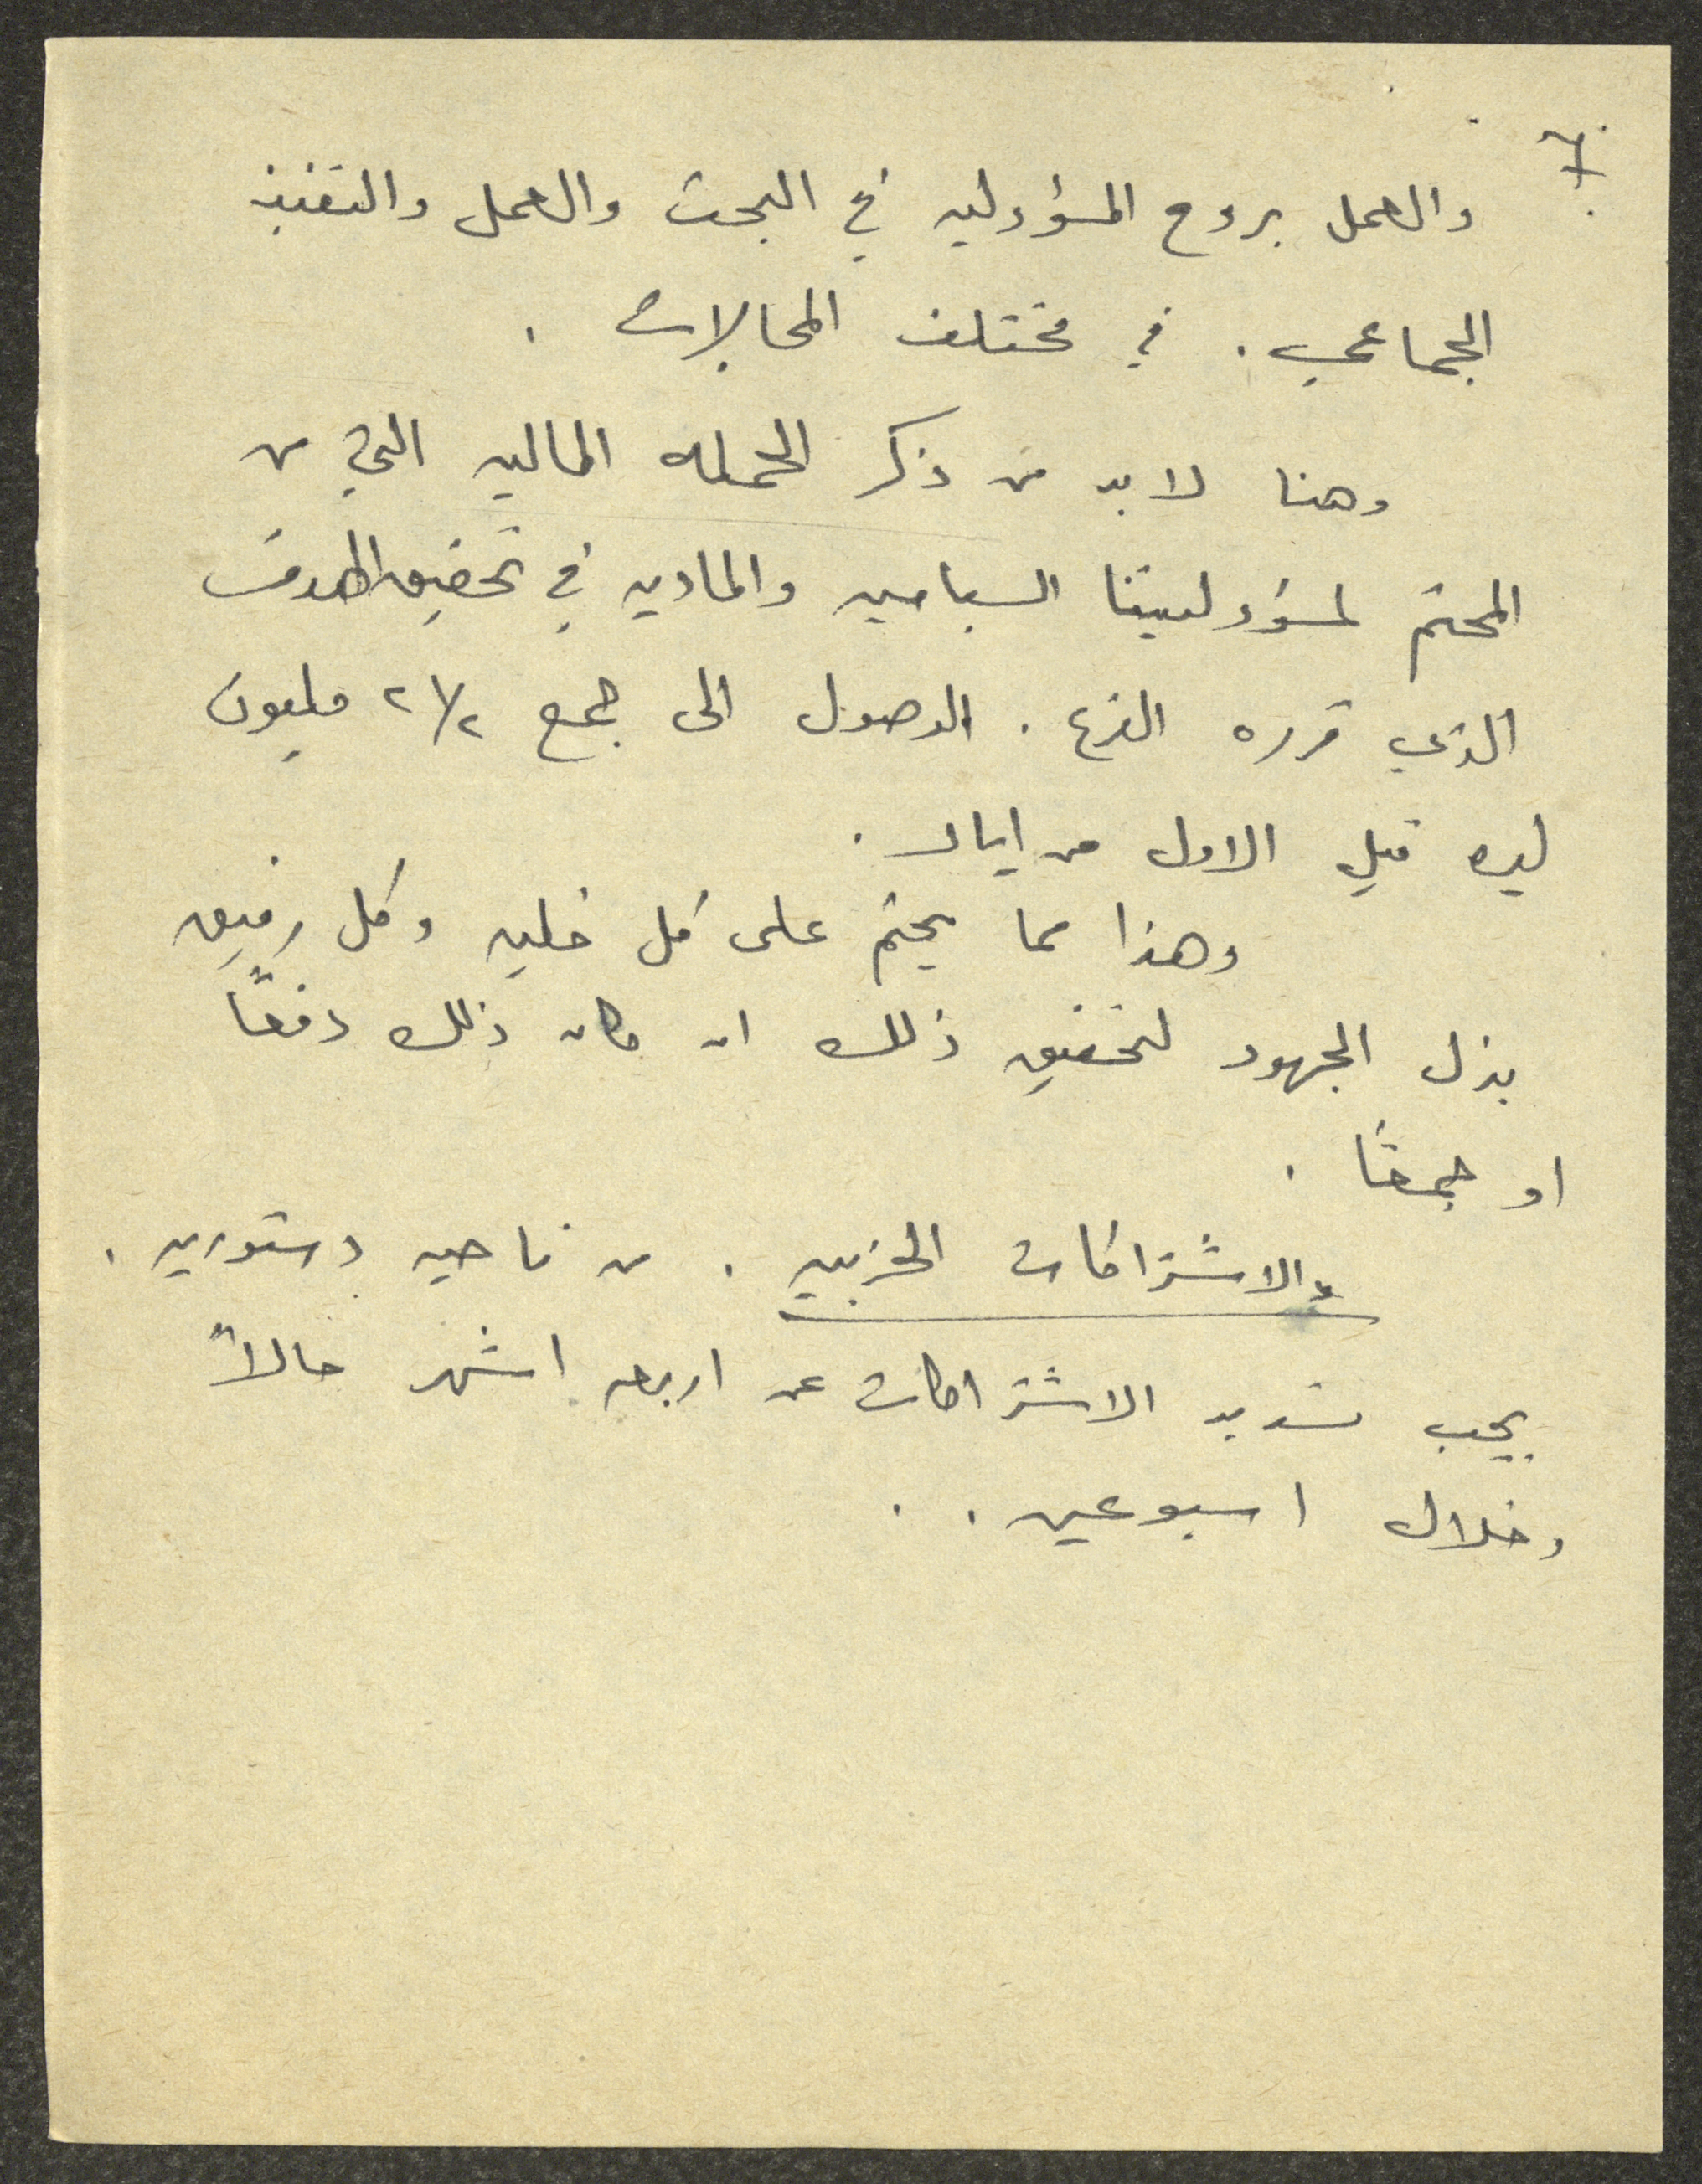 7
والعمل بروح المسؤوليه في البحث والعمل والتنفيذ
الجماعي . في مختلف المجالات .
وهنا لا بد من ذكر الحمله الماليه التي من
المحتم لمسؤوليتنا السياسيه والماديه في تحقيق الهدف
الذي قرره الفرع . الوصول الى جمع ٢ ١/٢ مليون
ليره قبل الاول من ايار .
وهذا مما يحتم على كل خليه وكل رفيق
بذل الجهود لتحقيق ذلك ان كان ذلك دفعاً
او جمعاً .
والاشتراكات الحزبيه . من ناحيه دستوريه .
يجب تسديد الاشتراكات عن اربعه اشهر حالاً
وخلال اسبوعين . .